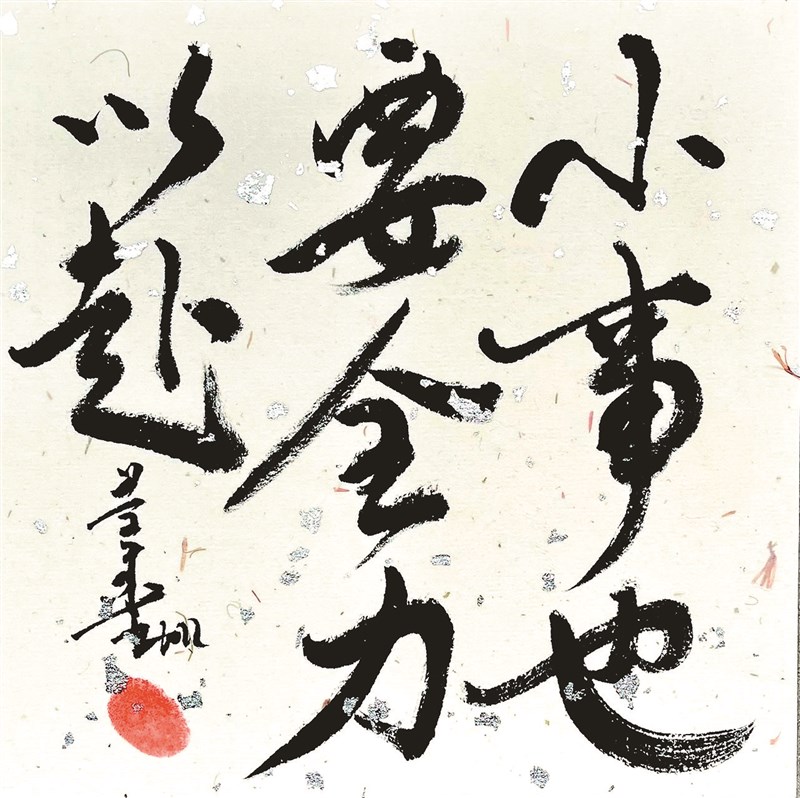 小事也
要全力
以赴